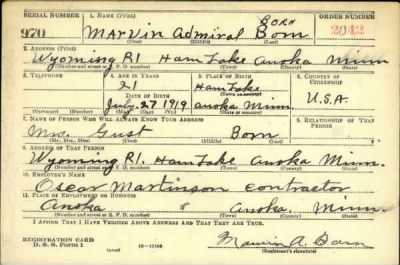 SERIAL NUMBER 1. NAME (Print) ORDER NUMBER
BORN
970 Marvin Admiral Born 2042
(First) (Middle) (Last)
2. ADDRESS (Print)
Wyoming R1. Ham Lake Anoka Minn
(Number and street or R. F. D. number) (Town) (County) (State)
3. TELEPHONE 4. AGE IN YEARS 5. PLACE OF BIRTH 6. COUNTRY OF CITIZENSHIP
21 Ham Lake
DATE OF BIRTH (Town or county)
July 27 1919 Anoka Minn. U.S.A.
(Exchange) (Number) (Mo.) (Day) (Yr.) (State or country)
7. NAME OF PERSON WHO WILL ALWAYS KNOW YOUR ADDRESS 8. RELATIONSHIP OF THAT PERSON
Mrs. Gust Born
(Mr., Mrs., Miss) (First) (Middle) (Last)
9. ADDRESS OF THAT PERSON
Wyoming R1. Ham Lake Anoka Minn.
(Number and street or R. F. D. number) (Town) (County) (State)
10. EMPLOYER'S NAME
Oscar Martinson contractor
11. PLACE OF EMPLOYMENT OR BUSINESS
Anoka Anoka, Minn.
(Number and street or R. F. D. number) (Town) (County) (State)
I AFFIRM THAT I HAVE VERIFIED ABOVE ANSWERS AND THAT THEY ARE TRUE.
REGISTRATION CARD
D. S. S. Form 1 (over) Marvin A. Born
(Registrant's signature)